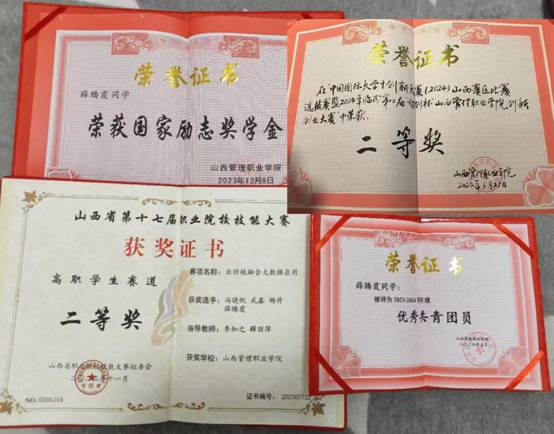 荣誉证书
薛腾霞同学
荣获国家励志奖学金
山西管理职业学院
2023年12月8日
荣誉证书
在中国国际大学生创新大赛(2024)山西赛区比赛
选拔赛暨2024年临汾
山西管理职业学院创新
创业大赛中荣获
二等奖
山西管理职业学院
山西省第十七届职业院校技能大赛
获奖证书
高职学生赛道
二等奖
赛项名称:业财税融合大数据应用
获奖选手:冯晓帆 武鑫 杨丹
薛腾霞
指导教师:李知之 薛丽萍
获奖学校:山西管理职业学院
山西省职业院校技能大赛组委会
NO:0006268
证书编号:
荣誉证书
薛腾霞同学:
被评为2023-2024年度
优秀共青团员